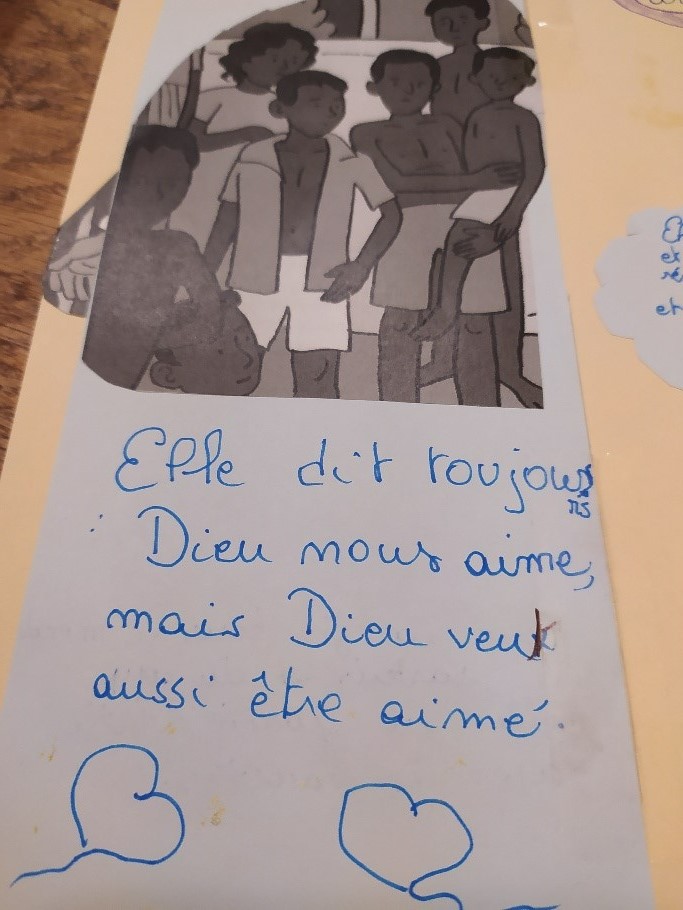 Elle dit toujours
rs
: Dieu nous aime,
mais Dieu veut
aussi être aimé.
et